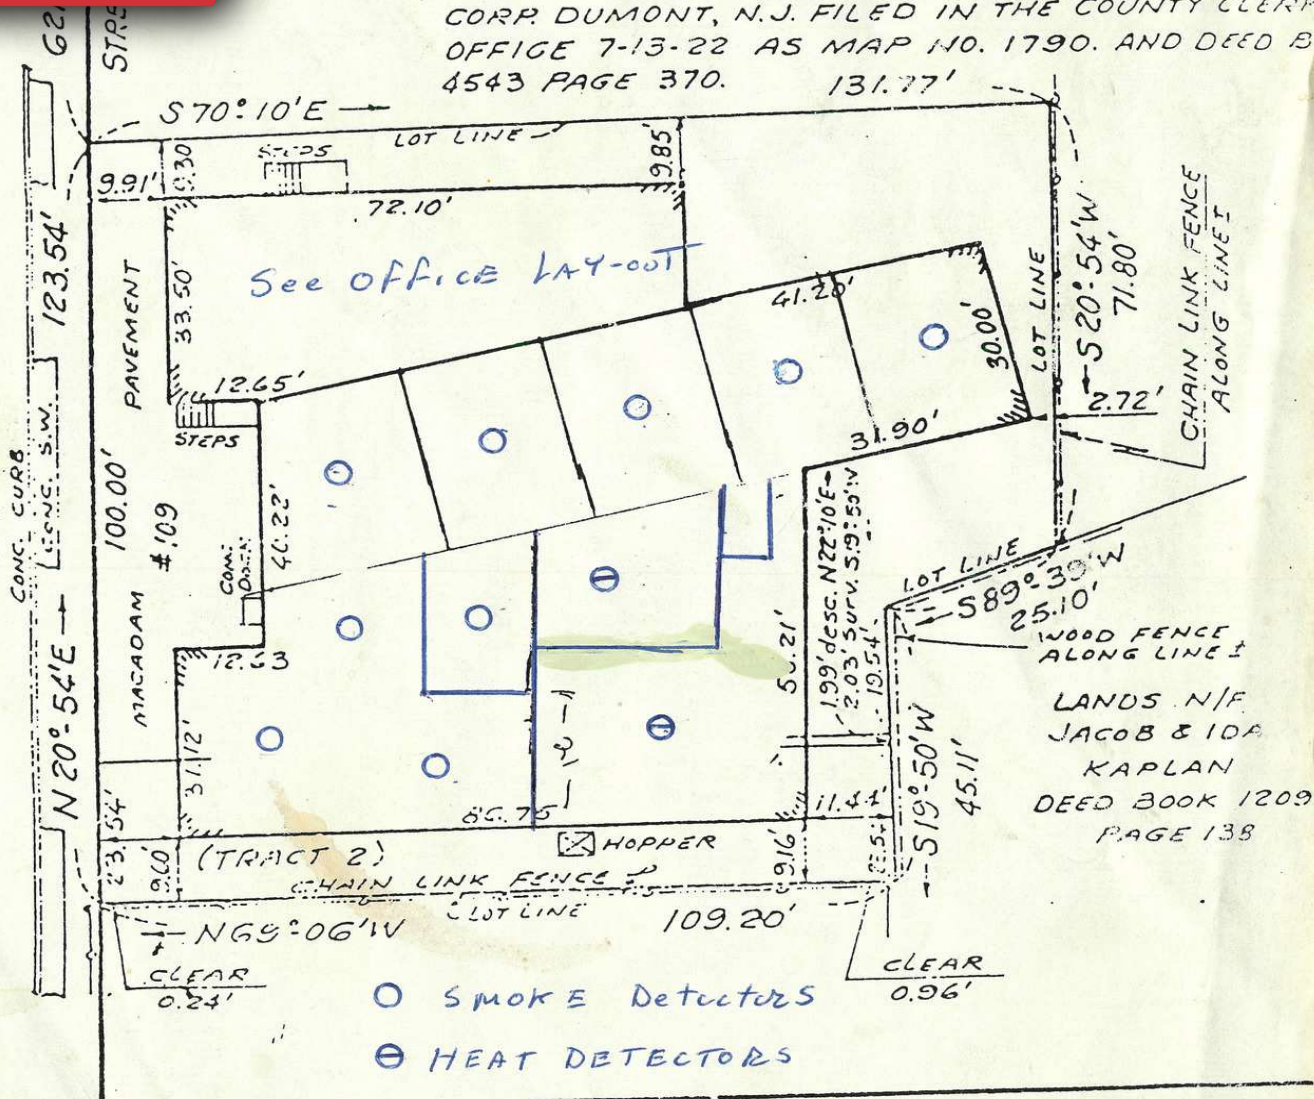 CORP. DUMONT, N.J. FILED IN THE COUNTY CLERK
OFFICE 7-13-22 AS MAP NO. 1790. AND DEED B
4543 PAGE 370.
131.77'
S70°10'E
LOT LINE
STEPS
9.91'
9.30
9.85'
72.10'
See OFFICE LAY-OUT
123.54'
PAVEMENT
33.50'
12.65'
STEPS
41.20'
30.00'
LOT LINE
S20°54'W
71.80'
CHAIN LINK FENCE
ALONG LINE±
2.72'
31.90'
CONC. CURB
CONC. S.W.
100.00'
#109
MACADAM
N20°54'E
12.63
31.12'
1.99' desc. N22°10'E
2.03' Surv. S19°50'W
19.54'
LOT LINE
S89°39'W
25.10'
WOOD FENCE
ALONG LINE±
LANDS N/F
JACOB & IDA
KAPLAN
DEED BOOK 1209
PAGE 138
S19°50'W
45.11'
11.44'
9.16'
85.75
HOPPER
23.54'
9.00'
(TRACT 2)
CHAIN LINK FENCE
LOT LINE
N69°06'W
109.20'
CLEAR
0.24'
CLEAR
0.96'
SMOKE Detectors
HEAT DETECTORS